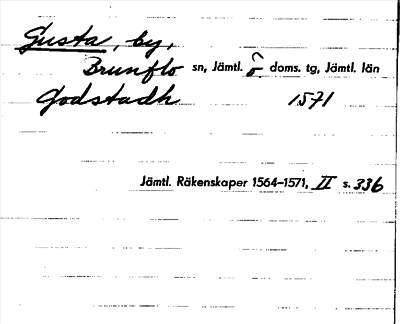 Gusta, by,
Brunflo sn, Jämtl. ö. doms. tg, Jämtl. län
Godstadh 1571
Jämtl. Räkenskaper 1564–1571, II s. 336